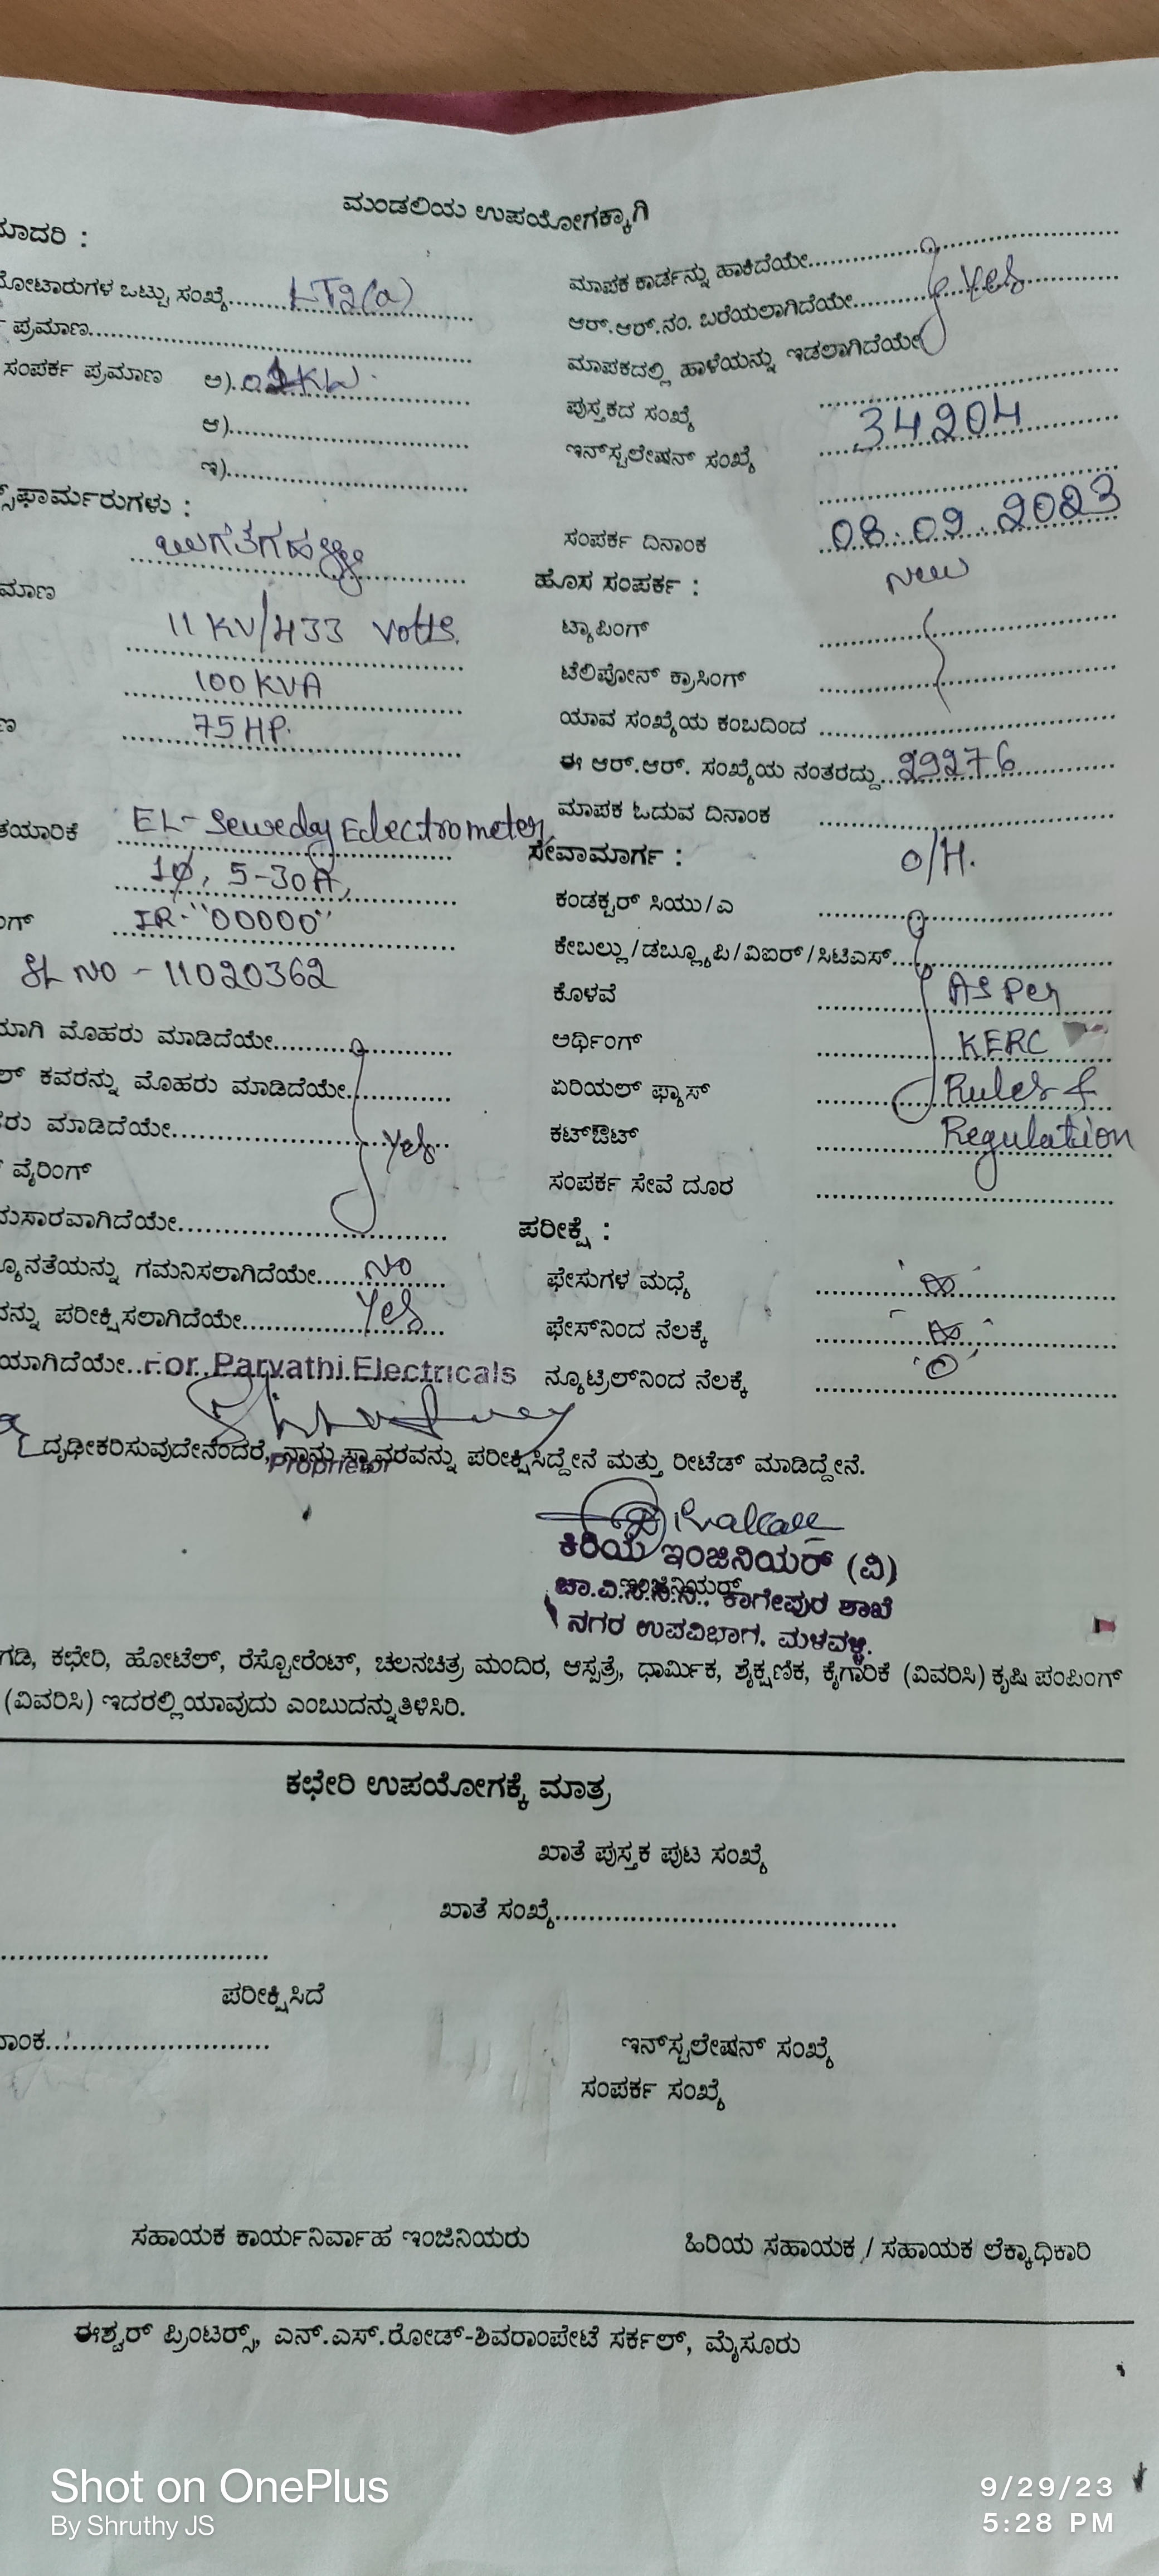 ಮಂಡಲಿಯ ಉಪಯೋಗಕ್ಕಾಗಿ
ಮಾದರಿ :
ಮೋಟಾರುಗಳ ಒಟ್ಟು ಸಂಖ್ಯೆ........LT2(a)
ಪ್ರಮಾಣ
ಸಂಪರ್ಕ ಪ್ರಮಾಣ ಅ)
KW.
ಆ)
ಇ)
ಸ್‌ಫಾರ್ಮರುಗಳು :
ಮಾಣ
11 KV/433 Volts.
100 KVA
75 HP.
ತಯಾರಿಕೆ EL-Sewedy Electrometer,
1ϕ, 5-30A,
IR-"00000"
SL NO - 11020362
ಯಾಗಿ ಮೊಹರು ಮಾಡಿದೆಯೇ
ಲ್ ಕವರನ್ನು ಮೊಹರು ಮಾಡಿದೆಯೇ
ರು ಮಾಡಿದೆಯೇ........Yes
ವೈರಿಂಗ್
ನುಸಾರವಾಗಿದೆಯೇ
ನ್ಯೂನತೆಯನ್ನು ಗಮನಿಸಲಾಗಿದೆಯೇ........NO
ವನ್ನು ಪರೀಕ್ಷಿಸಲಾಗಿದೆಯೇ........Yes
ಯಾಗಿದೆಯೇ...For Parvathi Electricals
ಮಾಪಕ ಕಾರ್ಡನ್ನು ಹಾಕಿದೆಯೇ
ಆರ್.ಆರ್.ನಂ. ಬರೆಯಲಾಗಿದೆಯೇ........Yes
ಮಾಪಕದಲ್ಲಿ ಹಾಳೆಯನ್ನು ಇಡಲಾಗಿದೆಯೇ
ಪುಸ್ತಕದ ಸಂಖ್ಯೆ
ಇನ್‌ಸ್ಟಲೇಷನ್ ಸಂಖ್ಯೆ 34204
ಸಂಪರ್ಕ ದಿನಾಂಕ 08.09.2023
ಹೊಸ ಸಂಪರ್ಕ : New
ಟ್ಯಾಪಿಂಗ್
ಟೆಲಿಪೋನ್ ಕ್ರಾಸಿಂಗ್
ಯಾವ ಸಂಖ್ಯೆಯ ಕಂಬದಿಂದ
ಈ ಆರ್.ಆರ್. ಸಂಖ್ಯೆಯ ನಂತರದ್ದು...29276
ಮಾಪಕ ಓದುವ ದಿನಾಂಕ
ಸೇವಾಮಾರ್ಗ : O/H.
ಕಂಡಕ್ಟರ್ ಸಿಯು/ಎ
ಕೇಬಲ್ಲು/ಡಬ್ಲ್ಯೂಪಿ/ವಿಐರ್/ಸಿಟಿಎಸ್
ಕೊಳವೆ AS Per
ಅರ್ಥಿಂಗ್ KERC
ಏರಿಯಲ್ ಫ್ಯೂಸ್ Rules &
ಕಟ್‌ಔಟ್ Regulation
ಸಂಪರ್ಕ ಸೇವೆ ದೂರ
ಪರೀಕ್ಷೆ :
ಫೇಸುಗಳ ಮಧ್ಯೆ ∞
ಫೇಸ್‌ನಿಂದ ನೆಲಕ್ಕೆ ∞
ನ್ಯೂಟ್ರಿಲ್‌ನಿಂದ ನೆಲಕ್ಕೆ 0
ದೃಢೀಕರಿಸುವುದೇನೆಂದರೆ, ನಾನು ಸ್ಥಾವರವನ್ನು ಪರೀಕ್ಷಿಸಿದ್ದೇನೆ ಮತ್ತು ರೀಟೆಡ್ ಮಾಡಿದ್ದೇನೆ.
Proprietor
ಕಿರಿಯ ಇಂಜಿನಿಯರ್ (ವಿ)
ಇಂಜಿನಿಯರ್
ಚಾ.ವಿ.ಸ.ನಿ.ನಿ., ಕಾಗೇಪುರ ಶಾಖೆ
ನಗರ ಉಪವಿಭಾಗ. ಮಳವಳ್ಳಿ.
ಗಡಿ, ಕಛೇರಿ, ಹೋಟೆಲ್, ರೆಸ್ಟೋರೆಂಟ್, ಚಲನಚಿತ್ರ ಮಂದಿರ, ಆಸ್ಪತ್ರೆ, ಧಾರ್ಮಿಕ, ಶೈಕ್ಷಣಿಕ, ಕೈಗಾರಿಕೆ (ವಿವರಿಸಿ) ಕೃಷಿ ಪಂಪಿಂಗ್
(ವಿವರಿಸಿ) ಇದರಲ್ಲಿ ಯಾವುದು ಎಂಬುದನ್ನು ತಿಳಿಸಿರಿ.
ಕಛೇರಿ ಉಪಯೋಗಕ್ಕೆ ಮಾತ್ರ
ಖಾತೆ ಪುಸ್ತಕ ಪುಟ ಸಂಖ್ಯೆ
ಖಾತೆ ಸಂಖ್ಯೆ
ಪರೀಕ್ಷಿಸಿದೆ
ನಾಂಕ
ಇನ್‌ಸ್ಟಲೇಷನ್ ಸಂಖ್ಯೆ
ಸಂಪರ್ಕ ಸಂಖ್ಯೆ
ಸಹಾಯಕ ಕಾರ್ಯನಿರ್ವಾಹ ಇಂಜಿನಿಯರು ಹಿರಿಯ ಸಹಾಯಕ / ಸಹಾಯಕ ಲೆಕ್ಕಾಧಿಕಾರಿ
ಈಶ್ವರ್ ಪ್ರಿಂಟರ್ಸ್, ಎನ್.ಎಸ್.ರೋಡ್-ಶಿವರಾಂಪೇಟೆ ಸರ್ಕಲ್, ಮೈಸೂರು
Shot on OnePlus
By Shruthy JS
9/29/23
5:28 PM